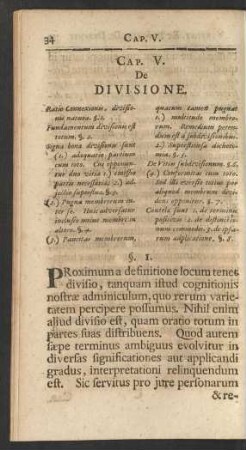 34 CAP. V.
CAP. V.
De
DIVISIONE.
Ratio Connexionis, divisio-
nis natura. §. 1.
Fundamentum divisionis est
totum. §. 2.
Signa bona divisionis sunt
(1.) adæquatio partium
cum toto. Cui opponun-
tur duo vitia 1) omissio
partis necessariæ; 2) ad-
jectio superflua. §. 3.
(2.) Pugna membrorum in-
ter se.
altero. §. 4.
(3.) Paucitas membrorum,
quacum tamen pugnat
1.) multitudo membro-
rum. Remedium petun-
dum est à subdivisionibus.
2.) Superstitiosa dichoto-
mia. §. 5.
De Vitio subdivisionum §. 6.
(4.) Conformitas cum toto.
aliquod membrum
opponitur. §. 7.
Cautela sunt 1. de terminis
2. de
num commodo; 3. de ipsa-
rum adplicatione. §. 8.
§. 1.
PRoximum a definitione locum tenet
divisio, tanquam istud cognitionis
nostræ adminiculum, quo rerum varie-
tatem percipere possumus. Nihil enim
aliud divisio est, quam oratio totum in
partes suas distribuens. Quod autem
sæpe terminus ambiguus evolvitur in
diversas significationes aut applicandi
gradus, interpretationi relinquendum
est. Sic servitus pro jure personarum
& re-